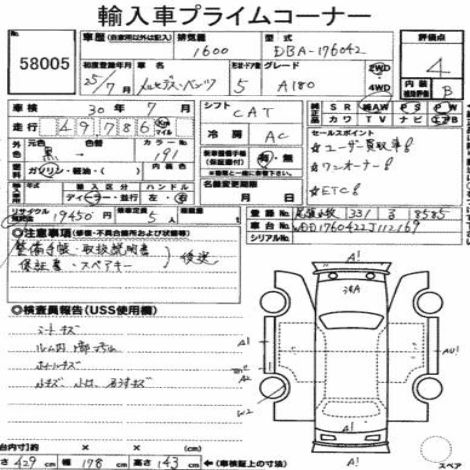 輸入車プライムコーナー
No. 58005
車歴 (自家用以外は記入) 排気量 1600 型式 DBA-176042 評価点 4
初度登録年月 25年/7月 メルセデス・ベンツ ドア形状 5 グレード A180 2WD 4WD 内装 補助評価 B
車検 30年 7月 シフト CAT 純正品 SR 純AW PS PW
走行 49786 Km マイル 冷房 AC カワ TV ナビ エアB
外色 元色 黒 色替 カラーNo. 191 内装色 有・無
燃料 ガソリン・軽油・( )
輸入車 輸入区分 ディーラー・並行 ハンドル 左・右
名義変更期限 月 日
セールスポイント
☆ユーザー買取車!
☆ワンオーナー!
☆ETC!
リサイクル預託金 19450円 乗車定員 5人
登録No. 尾張小牧 331 3 8585
車台No. WDD1760422J112169
シリアルNo.
◎注意事項(修復・不具合箇所および状態等)
整備手帳・取扱説明書
保証書・スペアキー 後送
◎検査員報告(USS使用欄)
シートキズ
ホイールキズ
台内寸(約) × ×
長さ 429 cm 幅 178 cm 高さ 143 cm ←(車検証上の寸法)
A1
A1
A2
W2
A1
スペア